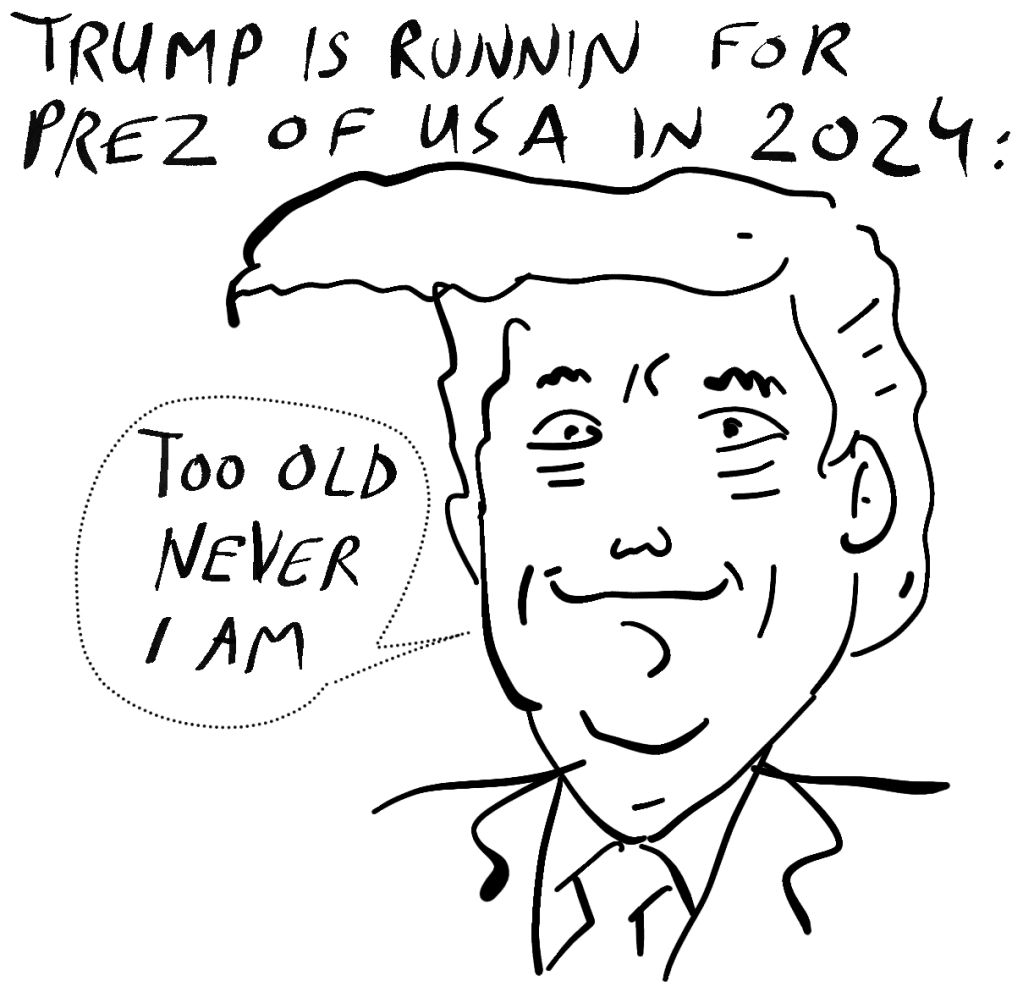 TRUMP IS RUNNIN FOR
PREZ OF USA IN 2024:
TOO OLD
NEVER
I AM